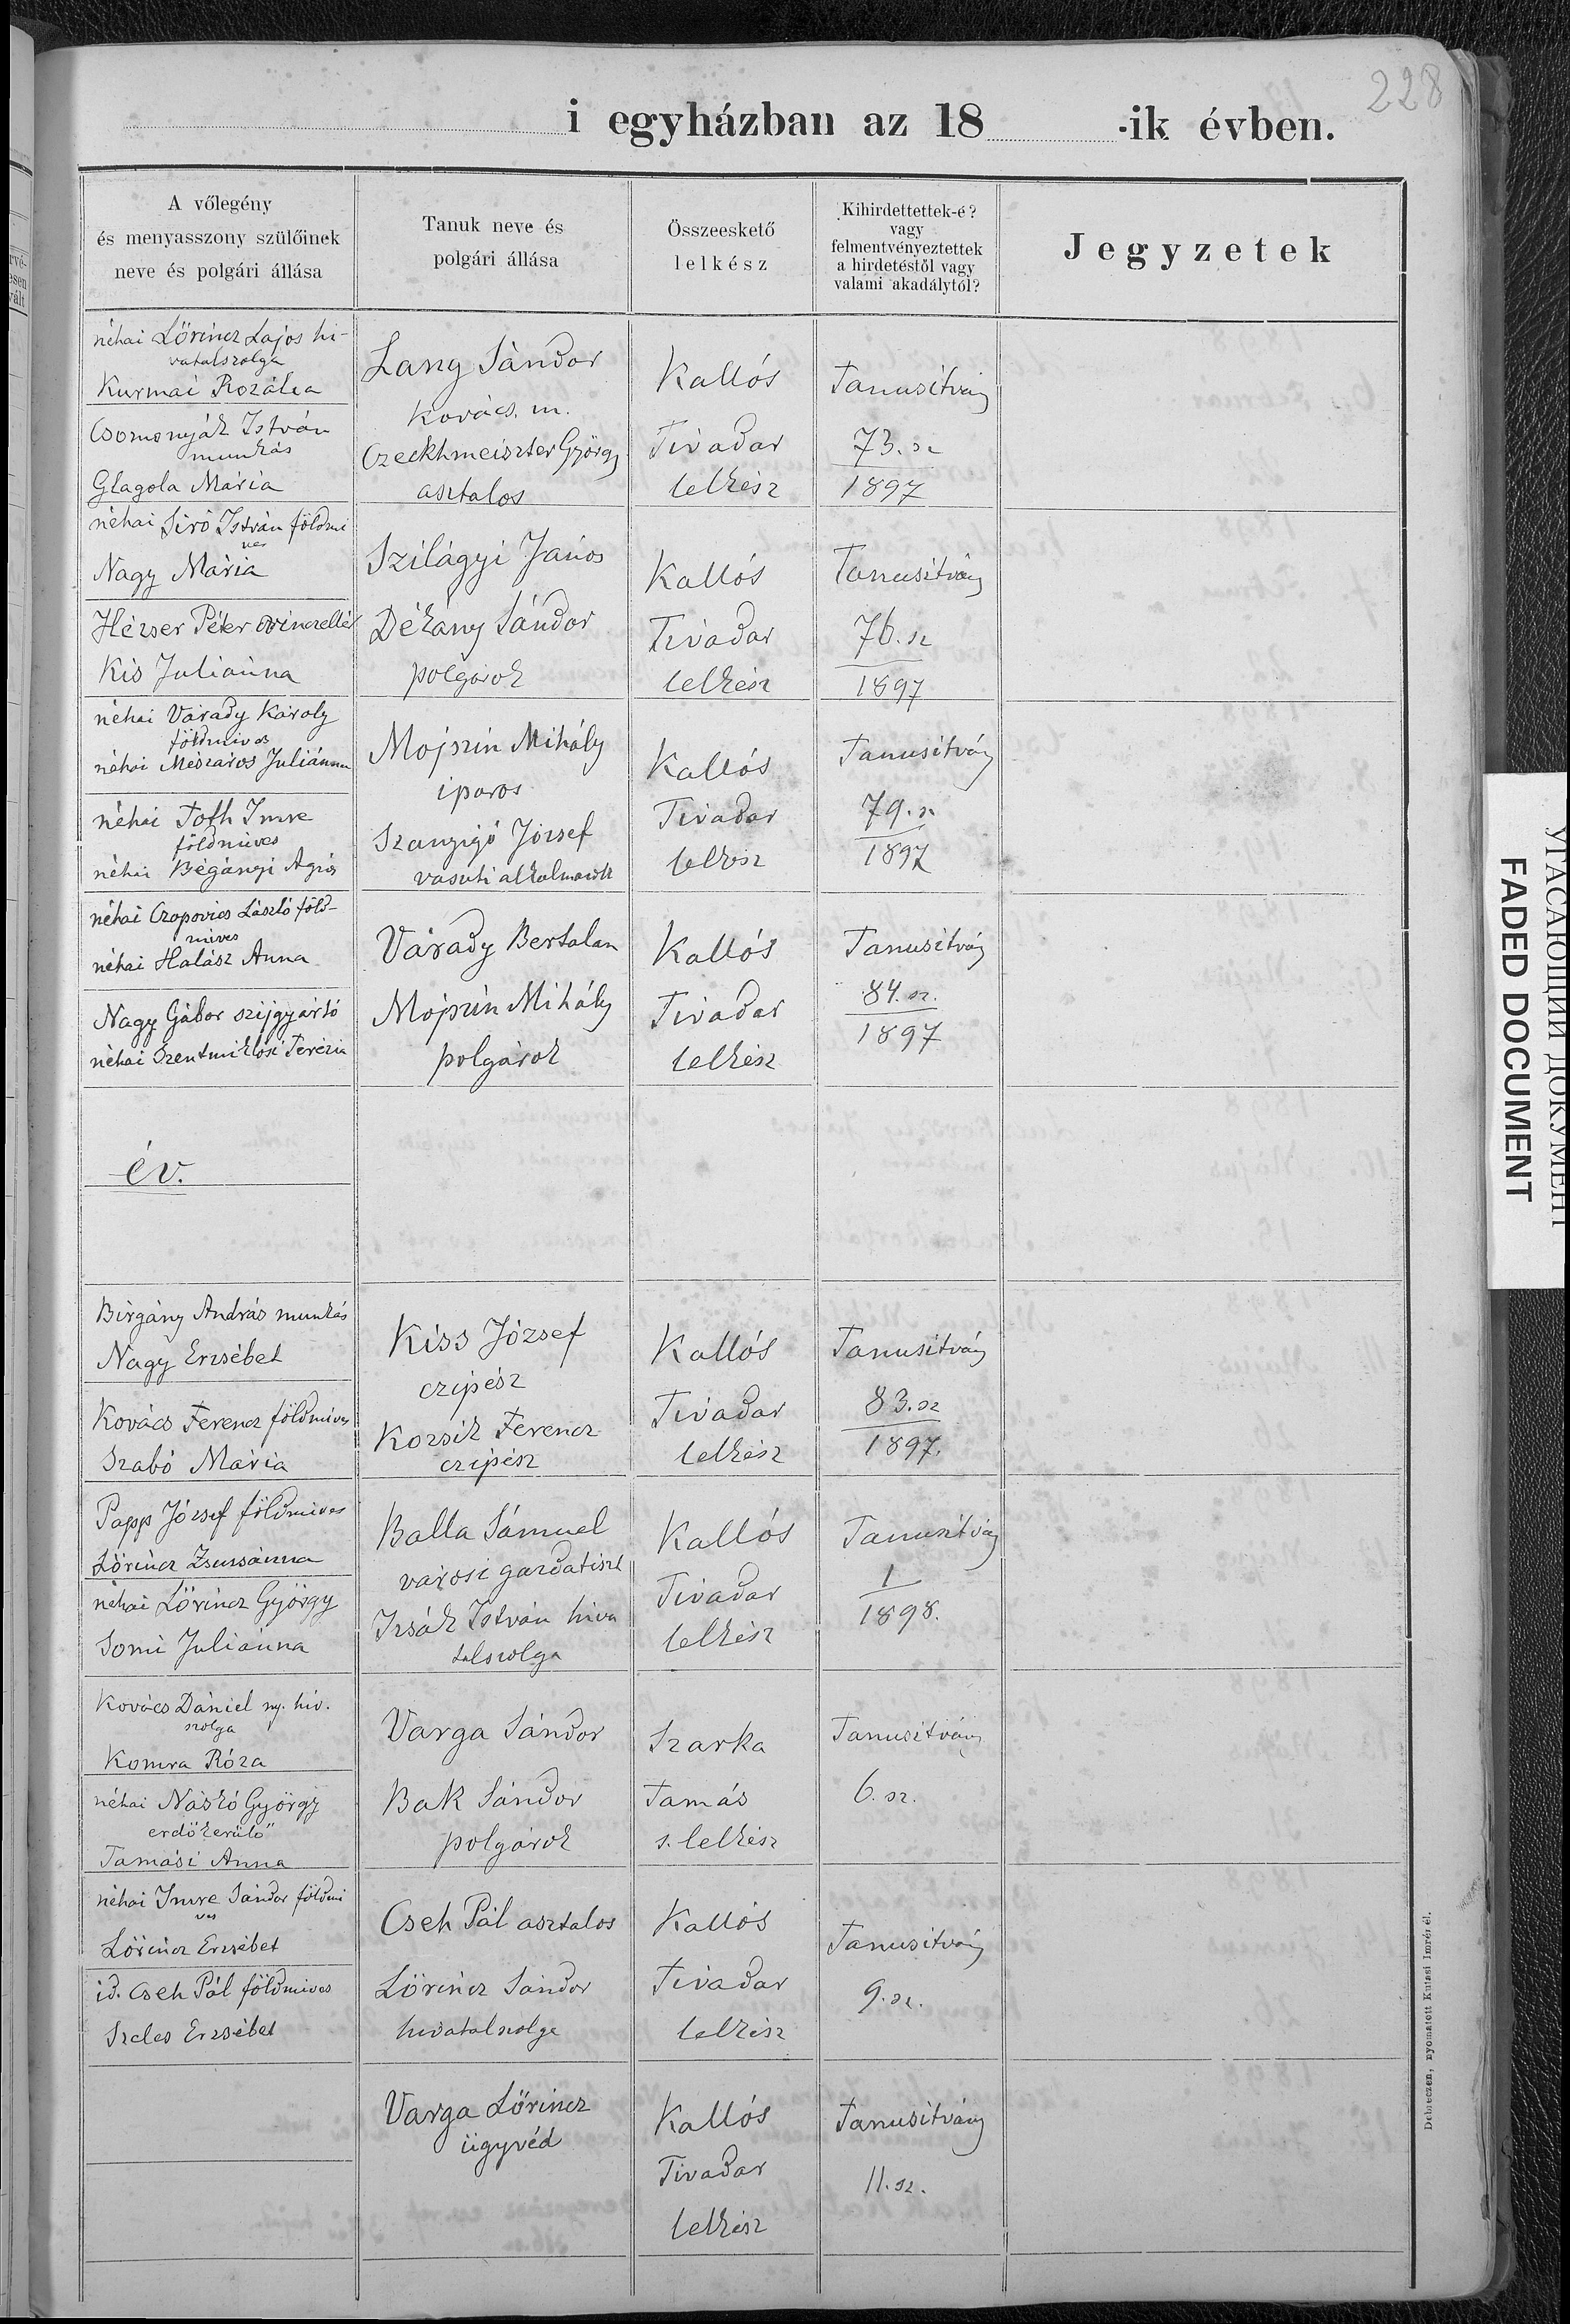 228
i egyházban az 18 -ik évben.
A vőlegény
és menyasszony szülőinek
neve és polgári állása
Tanuk neve és
polgári állása
Összeeskető
lelkész
Kihirdettettek-é?
vagy
felmentvényeztettek
a hirdetéstől vagy
valami akadálytól?
Jegyzetek
néhai Lőrincz Lajos hi-
vatalszolga
Kurmai Rozália
Csomonyák István
munkás
Glagola Mária
Lang Sándor
kovács. m.
Czeckhmeiszter György
asztalos
Kallós
Tivadar
lelkész
Tanusítvány
73. sz
1897
néhai Siró István földmi
ves
Nagy Mária
Hézser Péter vinczellér
Kis Juliánna
Szilágyi János
Dékány Sándor
polgárok
Kallós
Tivadar
lelkész
Tanusitvány
76. sz
1897
néhai Várady Károly
földmives
néhai Mészáros Juliánna
néhai Toth Imre
földmives
néhai Bégányi Ágnes
Mojszin Mihály
iparos
Szanyigó József
vasuti alkalmazott
Kallós
Tivadar
lelkész
Tanusítvány
79. sz
1897
néhai Czapovics László föld-
mives
néhai Halász Anna
Nagy Gábor szijgyártó
néhai Szentmiklósi Terézia
Várady Bertalan
Mojszin Mihály
polgárok
Kallós
Tivadar
lelkész
Tanusítvány
84. sz.
1897
év.
Birgány András munkás
Nagy Erzsébet
Kovács Ferencz földmives
Szabó Mária
Kiss József
czipész
Kozsik Ferencz
czipész
Kallós
Tivadar
lelkész
Tanusítvány
83. sz
1897.
Papp József földmives
Lőrincz Zsuzsánna
néhai Lőrincz György
Somi Juliánna
Balla Sámuel
városi gazdatiszt
Izsák István hiva
talszolga
Kallós
Tivadar
lelkész
Tanusítvány
1
1898.
Kovács Dániel ny. hiv.
szolga
Komra Róza
néhai Náskó György
erdőkerülő
Tamási Anna
Varga Sándor
Bak Sándor
polgárok
Szarka
Tamás
s. lelkész
Tanusítvány
6. sz.
néhai Imre Sándor földmi
ves
Lőrincz Erzsébet
id. Cseh Pál földmives
Szeles Erzsébet
Cseh Pál asztalos
Lőrincz Sándor
hivatalszolga
Kallós
Tivadar
lelkész
Tanusítvány
9. sz.
Varga Lőrincz
ügyvéd
Kallós
Tivadar
lelkész
Tanusítvány
11. sz.
Debreczen, nyomatott Kutasi Imrénél.
УГАСАЮЩИЙ ДОКУМЕНТ
FADED DOCUMENT